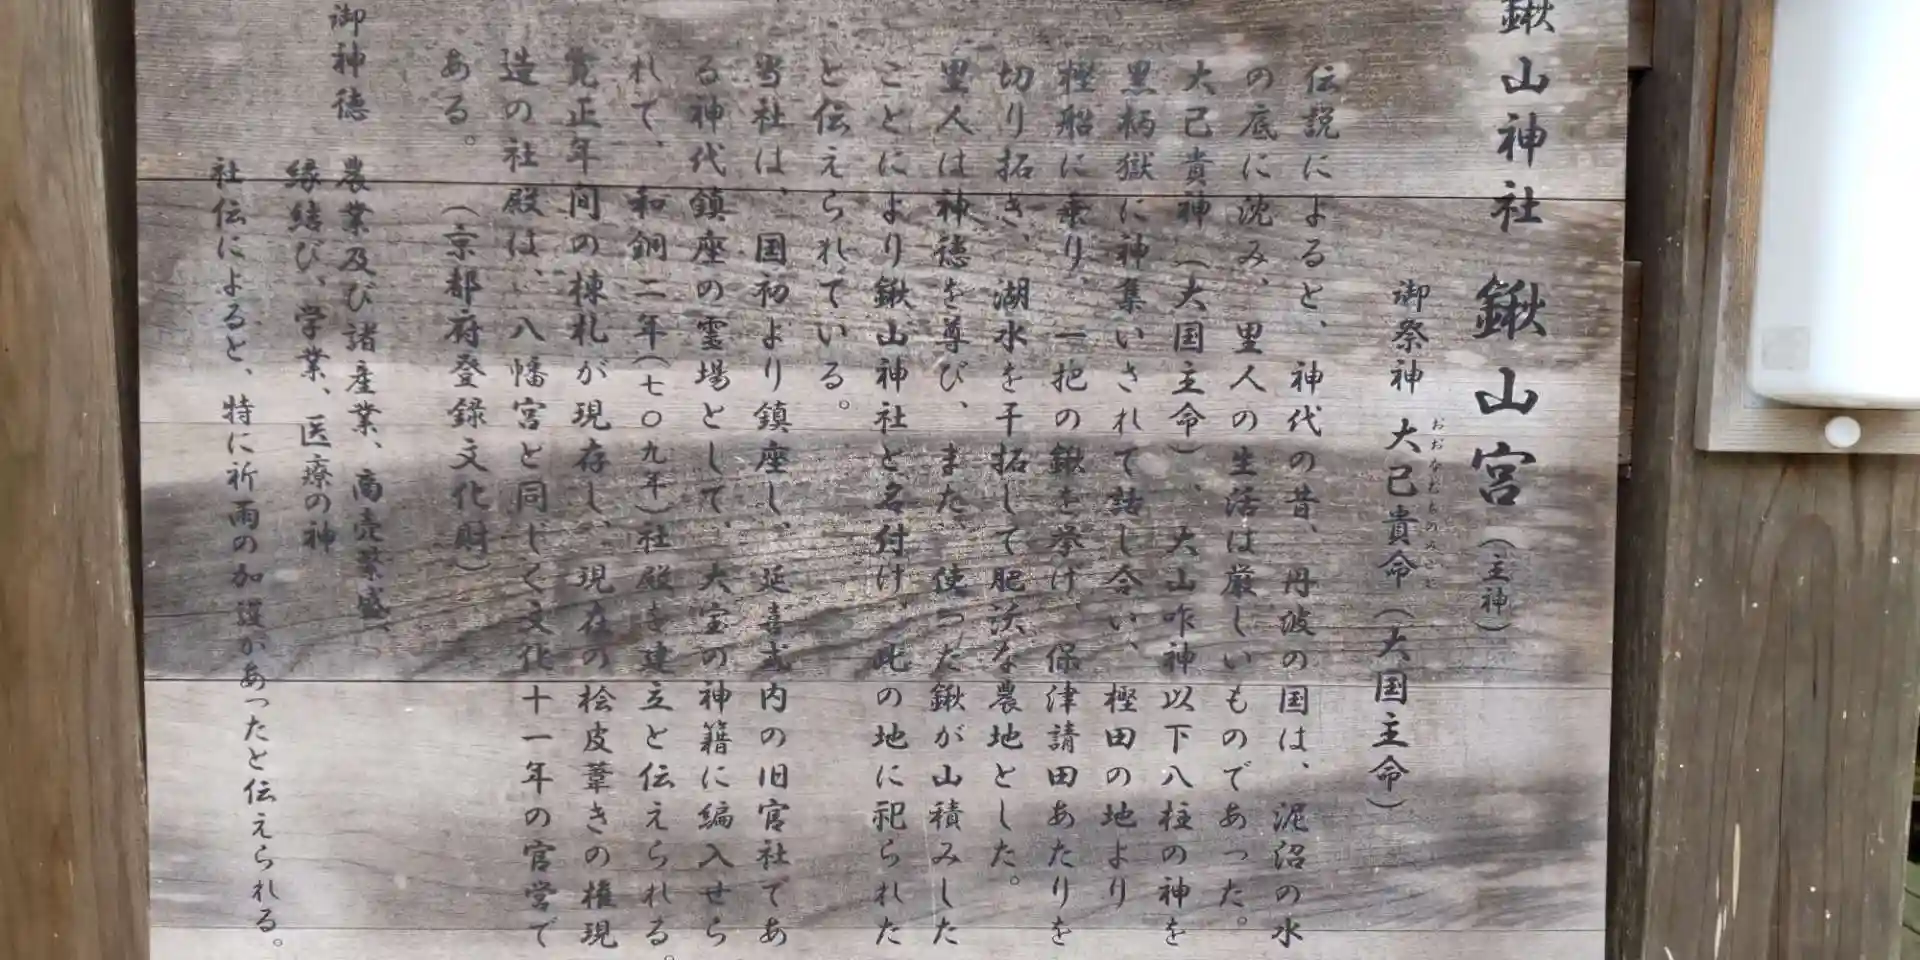 鍬山神社 鍬山宮（主神）
御祭神 大己貴命（大国主命）
おおなむちのみこと
伝説によると、神代の昔、丹波の国は、泥沼の水
の底に沈み、里人の生活は厳しいものであった。
大己貴神（大国主命）、大山咋神以下八柱の神を
黒柄獄に神集いされて話し合い、樫田の地より
樫船に乗り、一把の鍬を挙げ、保津請田あたりを
切り拓き、湖水を干拓して肥沃な農地とした。
里人は神徳を尊び、また、使った鍬が山積みした
ことにより鍬山神社と名付け、此の地に祀られた
と伝えられている。
当社は、国初より鎮座し、延喜式内の旧官社であ
る神代鎮座の霊場として、大宝の神籍に編入せら
れて、和銅二年（七〇九年）社殿を建立と伝えられる。
寛正年間の棟札が現存し、現在の桧皮葺きの権現
造の社殿は、八幡宮と同じく文化十一年の官営で
ある。（京都府登録文化財）
御神徳
農業及び諸産業、商売繁盛、
縁結び、学業、医療の神
社伝によると、特に祈雨の加護があったと伝えられる。